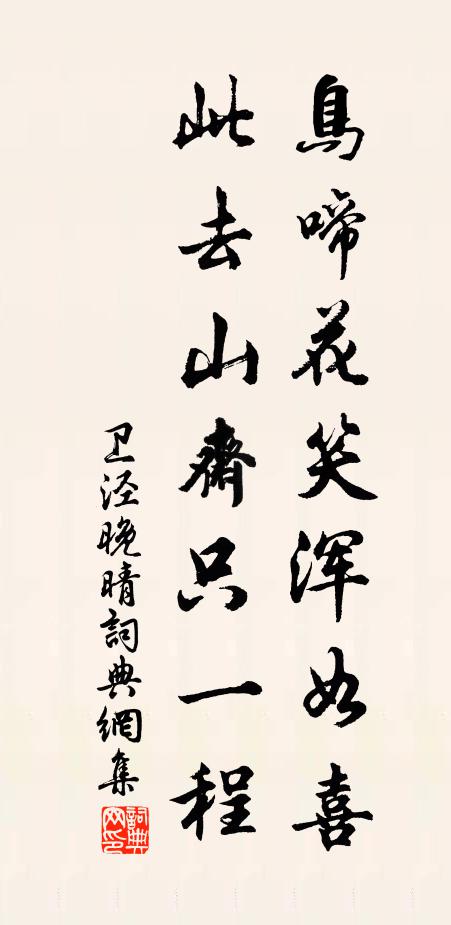 鳥啼花笑浑如喜
此去山齋只一程
卫泾晚晴詞典網集
詞典网印